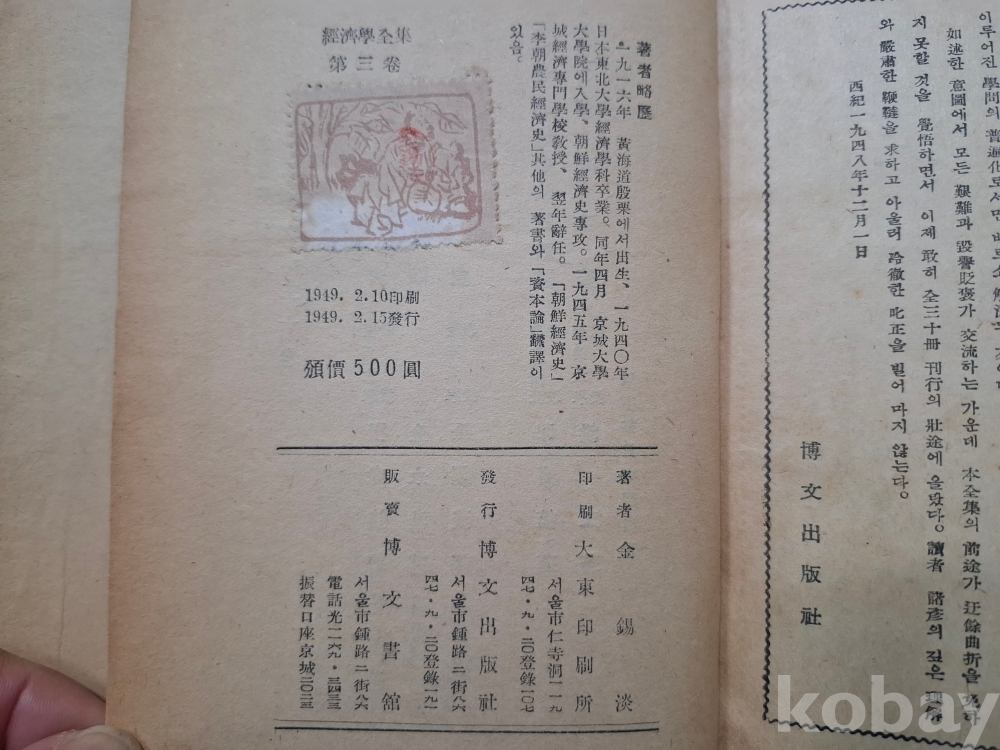 이루어진 學問의 普遍化로서만
如述한 意圖에서 모든 艱難과 毁譽貶褒가 交流하는 가운데 本全集의 前途가 迂餘曲折을 免하
지 못할 것을 覺悟하면서 이제 敢히 全三十冊 刊行의 壯途에 올랐다。讀者 諸彦의 깊은 理解
와 嚴肅한 鞭韃을 求하고 아울러 冷徹한 叱正을 빌어 마지 않는다。
西紀一九四八年十二月一日
博文出版社
著者略歷
一九一六年 黃海道殷栗에서出生、一九四〇年
日本東北大學經濟學科卒業。同年四月 京城大學
大學院에入學、朝鮮經濟史專攻。一九四五年 京
城經濟專門學校敎授、翌年辭任。「朝鮮經濟史」
「李朝農民經濟史」其他의 著書와「資本論」飜譯이
있음。
經濟學全集
第三卷
1949. 2.10印刷
1949. 2.15發行
頒價500圓
著者 金錫淡
印刷 大東印刷所
서울市仁寺洞一一九
四七・九・二〇登錄一〇七
發行 博文出版社
서울市鍾路二街八六
四七・九・二〇登錄一九一
販賣 博文書館
서울市鍾路二街八六
電話光二六九・三四三三
振替口座京城二〇二三
kobay